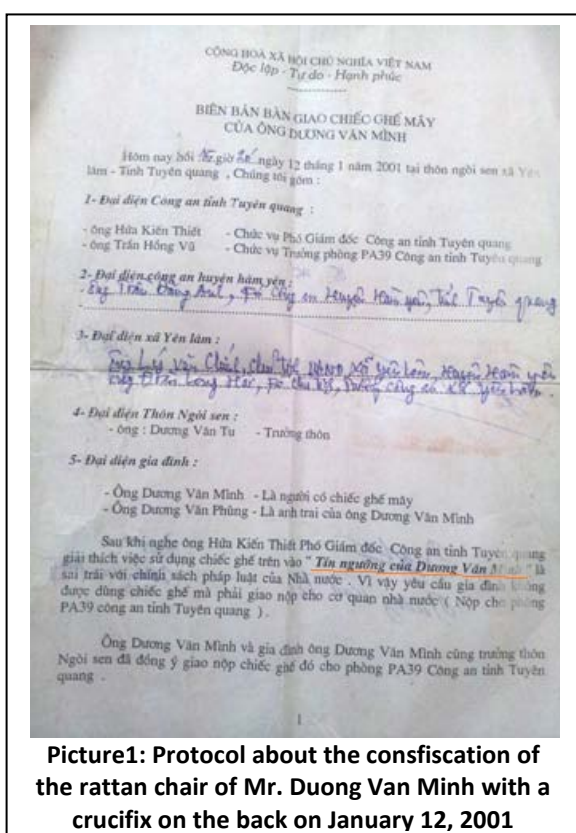 CỘNG HOÀ XÃ HỘI CHỦ NGHĨA VIỆT NAM
Độc lập - Tự do - Hạnh phúc
BIÊN BẢN BÀN GIAO CHIẾC GHẾ MÂY
CỦA ÔNG DƯƠNG VĂN MÌNH
Hôm nay hồi giờ ngày 12 tháng 1 năm 2001 tại thôn ngòi sen xã Yên
lâm - Tỉnh Tuyên quang , Chúng tôi gồm :
1- Đại diện Công an tỉnh Tuyên quang :
- ông Hứa Kiến Thiết - Chức vụ Phó Giám đốc Công an tỉnh Tuyên quang
- ông Trần Hồng Vũ - Chức vụ Trưởng phòng PA39 Công an tỉnh Tuyên quang
2- Đại diện công an huyện hàm yên :
Ông Trần Đăng công an huyện Hàm yên, Tuyên quang
3- Đại diện xã Yên lâm :
Ông Lý văn xã yên lâm, huyện Hàm yên
Ông Long công an xã yên lâm.
4- Đại diện Thôn Ngòi sen :
- ông : Dương Văn Tu - Trưởng thôn
5- Đại diện gia đình :
- Ông Dương Văn Mình - Là người có chiếc ghế mây
- Ông Dương Văn Phùng - Là anh trai của ông Dương Văn Mình
Sau khi nghe ông Hứa Kiến Thiết Phó Giám đốc Công an tỉnh Tuyên quang
giải thích việc sử dụng chiếc ghế trên vào " Tín ngưỡng của Dương Văn Mình " là
sai trái với chính sách pháp luật của Nhà nước . Vì vậy yêu cầu gia đình không
được dùng chiếc ghế mà phải giao nộp cho cơ quan nhà nước ( Nộp cho phòng
PA39 công an tỉnh Tuyên quang ).
Ông Dương Văn Mình và gia đình ông Dương Văn Mình cùng trưởng thôn
Ngòi sen đã đồng ý giao nộp chiếc ghế đó cho phòng PA39 Công an tỉnh Tuyên
quang .
1
Picture1: Protocol about the consfiscation of
the rattan chair of Mr. Duong Van Minh with a
crucifix on the back on January 12, 2001